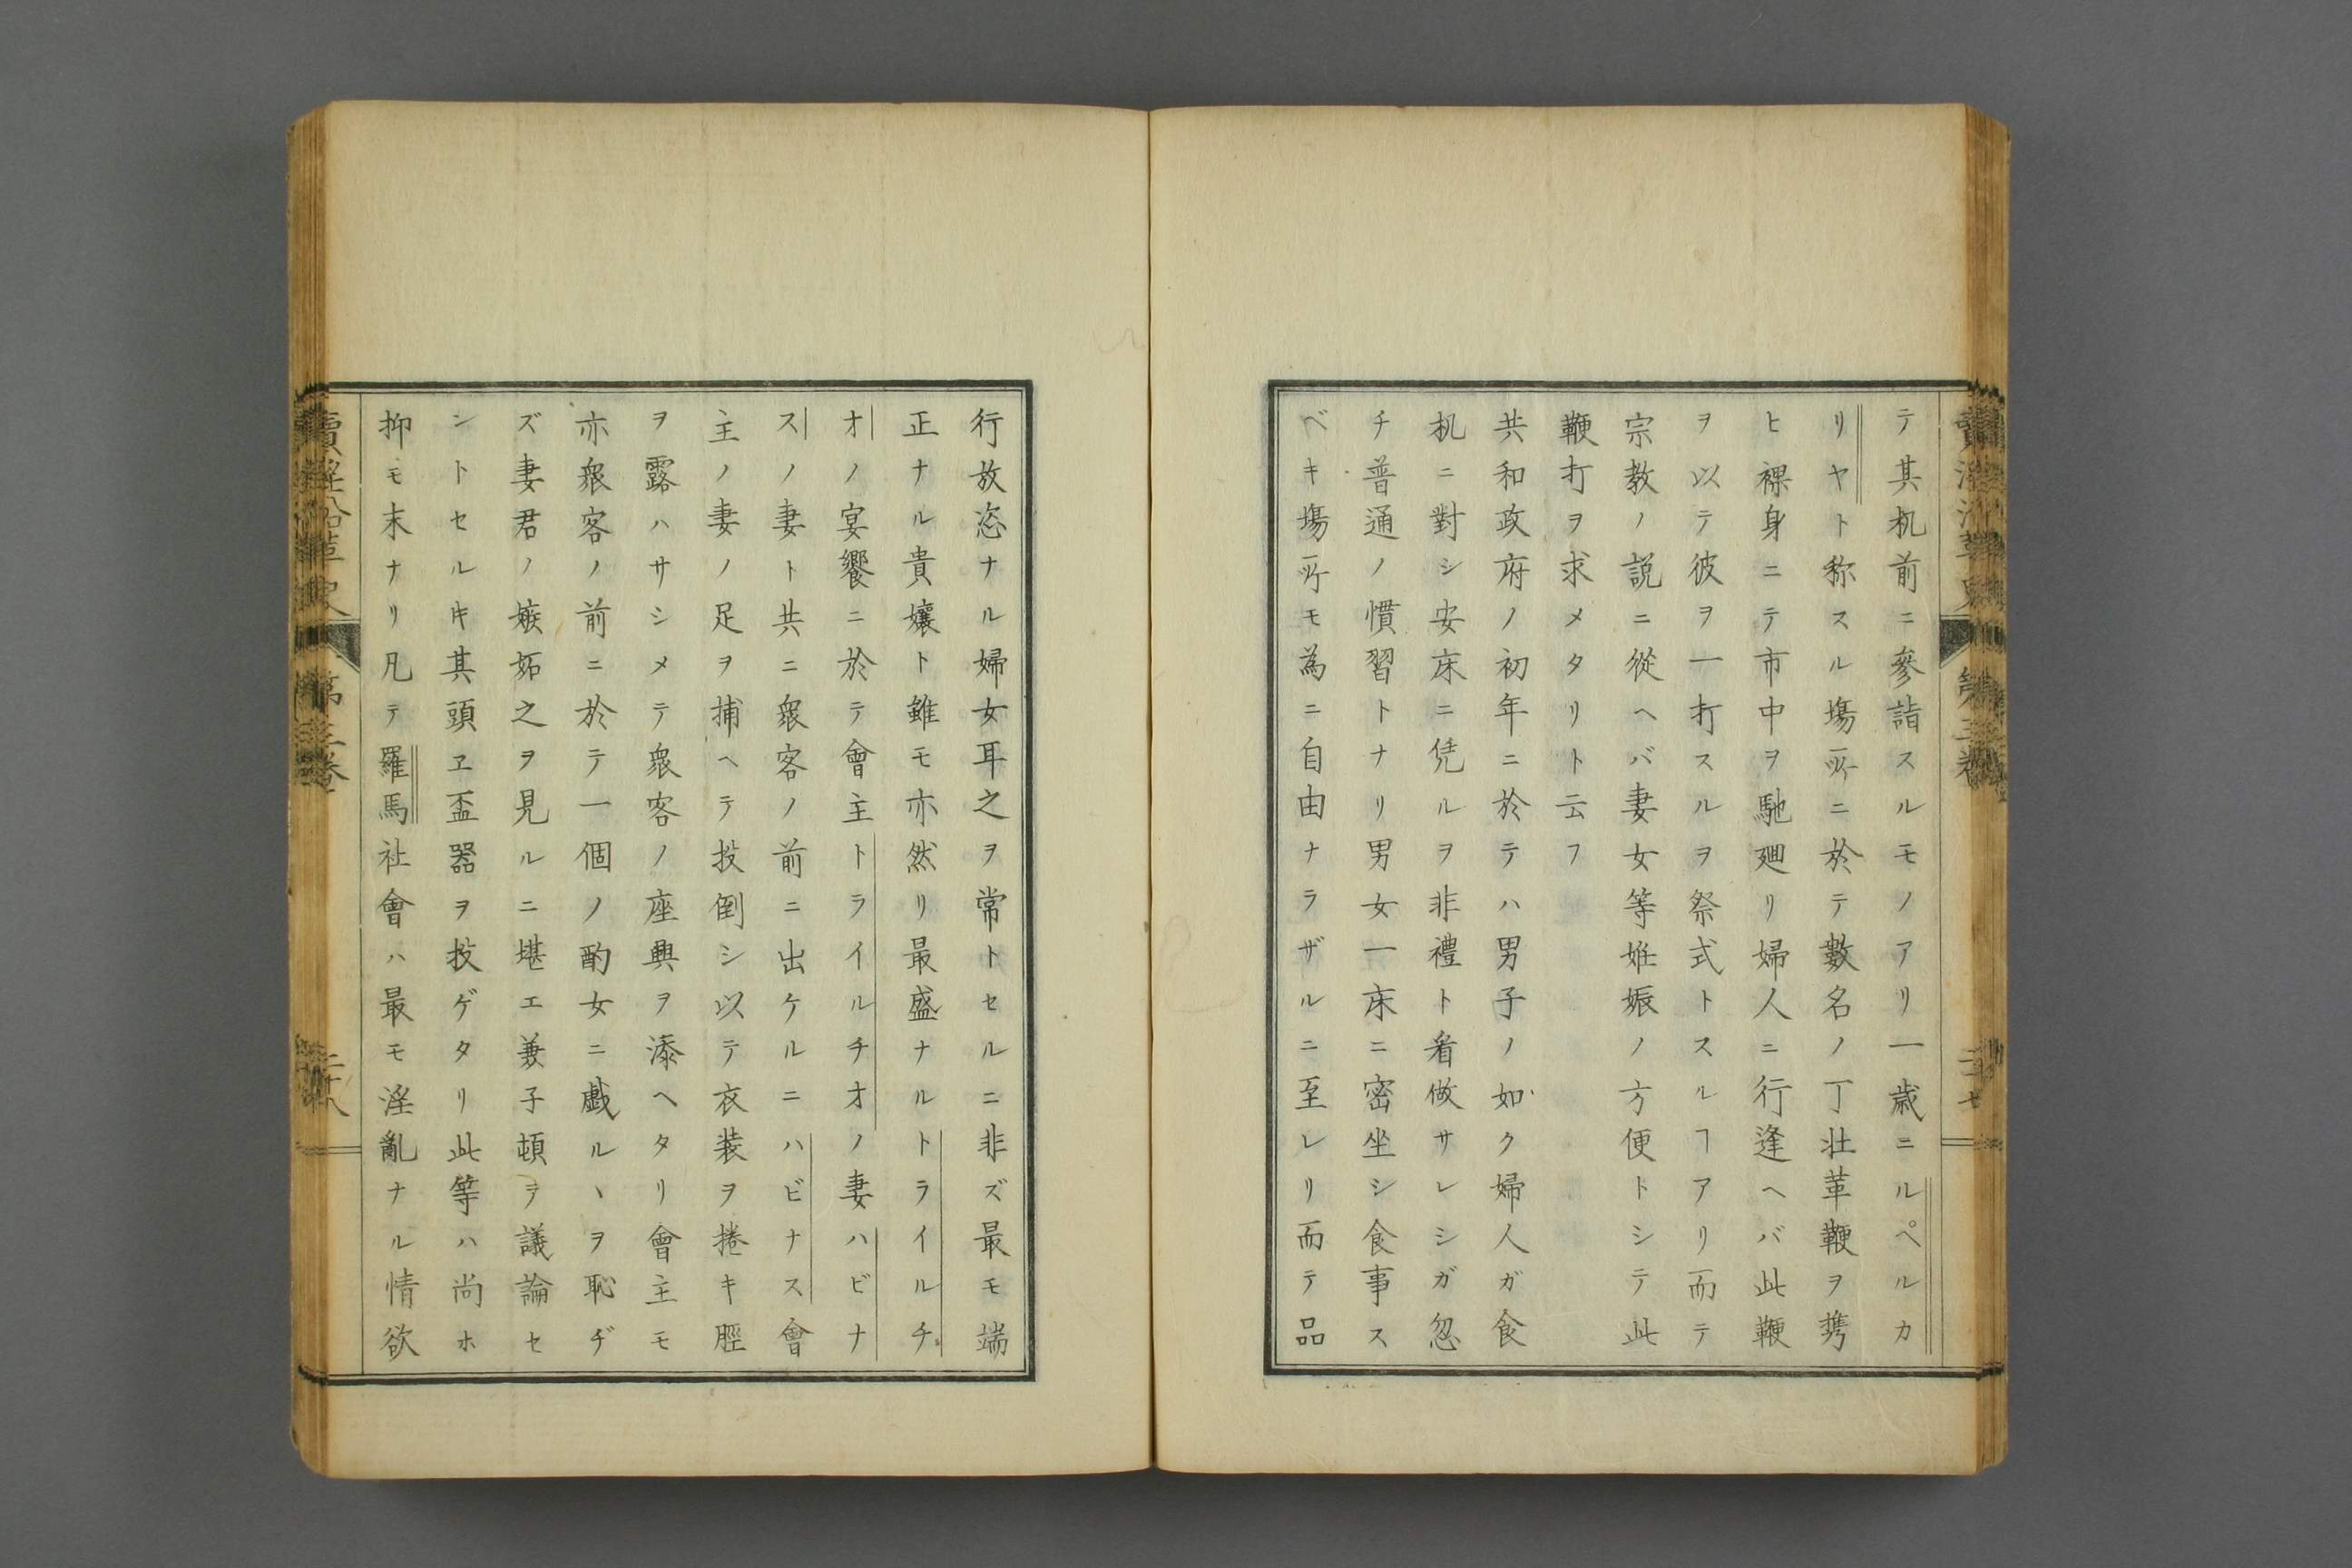 テ其机前ニ參詣スルモノアリ一歳ニルペルカ
リヤト称スル塲所ニ於テ數名ノ丁壮革鞭ヲ携
ヒ裸身ニテ市中ヲ馳廻リ婦人ニ行逢ヘバ此鞭
ヲ以テ彼ヲ一打スルヲ祭式トスルヿアリ而テ
宗教ノ説ニ從ヘバ妻女等姙娠ノ方便トシテ此
鞭打ヲ求メタリト云フ
共和政府ノ初年ニ於テハ男子ノ如ク婦人ガ食
机ニ對シ安床ニ凭ルヲ非禮ト看做サレシガ忽
チ普通ノ慣習トナリ男女一床ニ密坐シ食事ス
ベキ塲所モ為ニ自由ナラザルニ至レリ而テ品
行放恣ナル婦女耳之ヲ常トセルニ非ズ最モ端
正ナル貴孃ト雖モ亦然リ最盛ナルトライルチ
オノ宴饗ニ於テ會主トライルチオノ妻ハビナ
スノ妻ト共ニ衆客ノ前ニ出ケルニハビナス會
主ノ妻ノ足ヲ捕ヘテ投倒シ以テ衣装ヲ捲キ脛
ヲ露ハサシメテ衆客ノ座興ヲ添ヘタリ會主モ
亦衆客ノ前ニ於テ一個ノ酌女ニ戯ルヽヲ恥ヂ
ズ妻君ノ嫉妬之ヲ見ルニ堪エ兼子頓テ議論セ
シトセルキ其頭ヱ盃器ヲ投ゲタリ此等ハ尚ホ
抑モ末ナリ凡テ羅馬社會ハ最モ淫亂ナル情欲